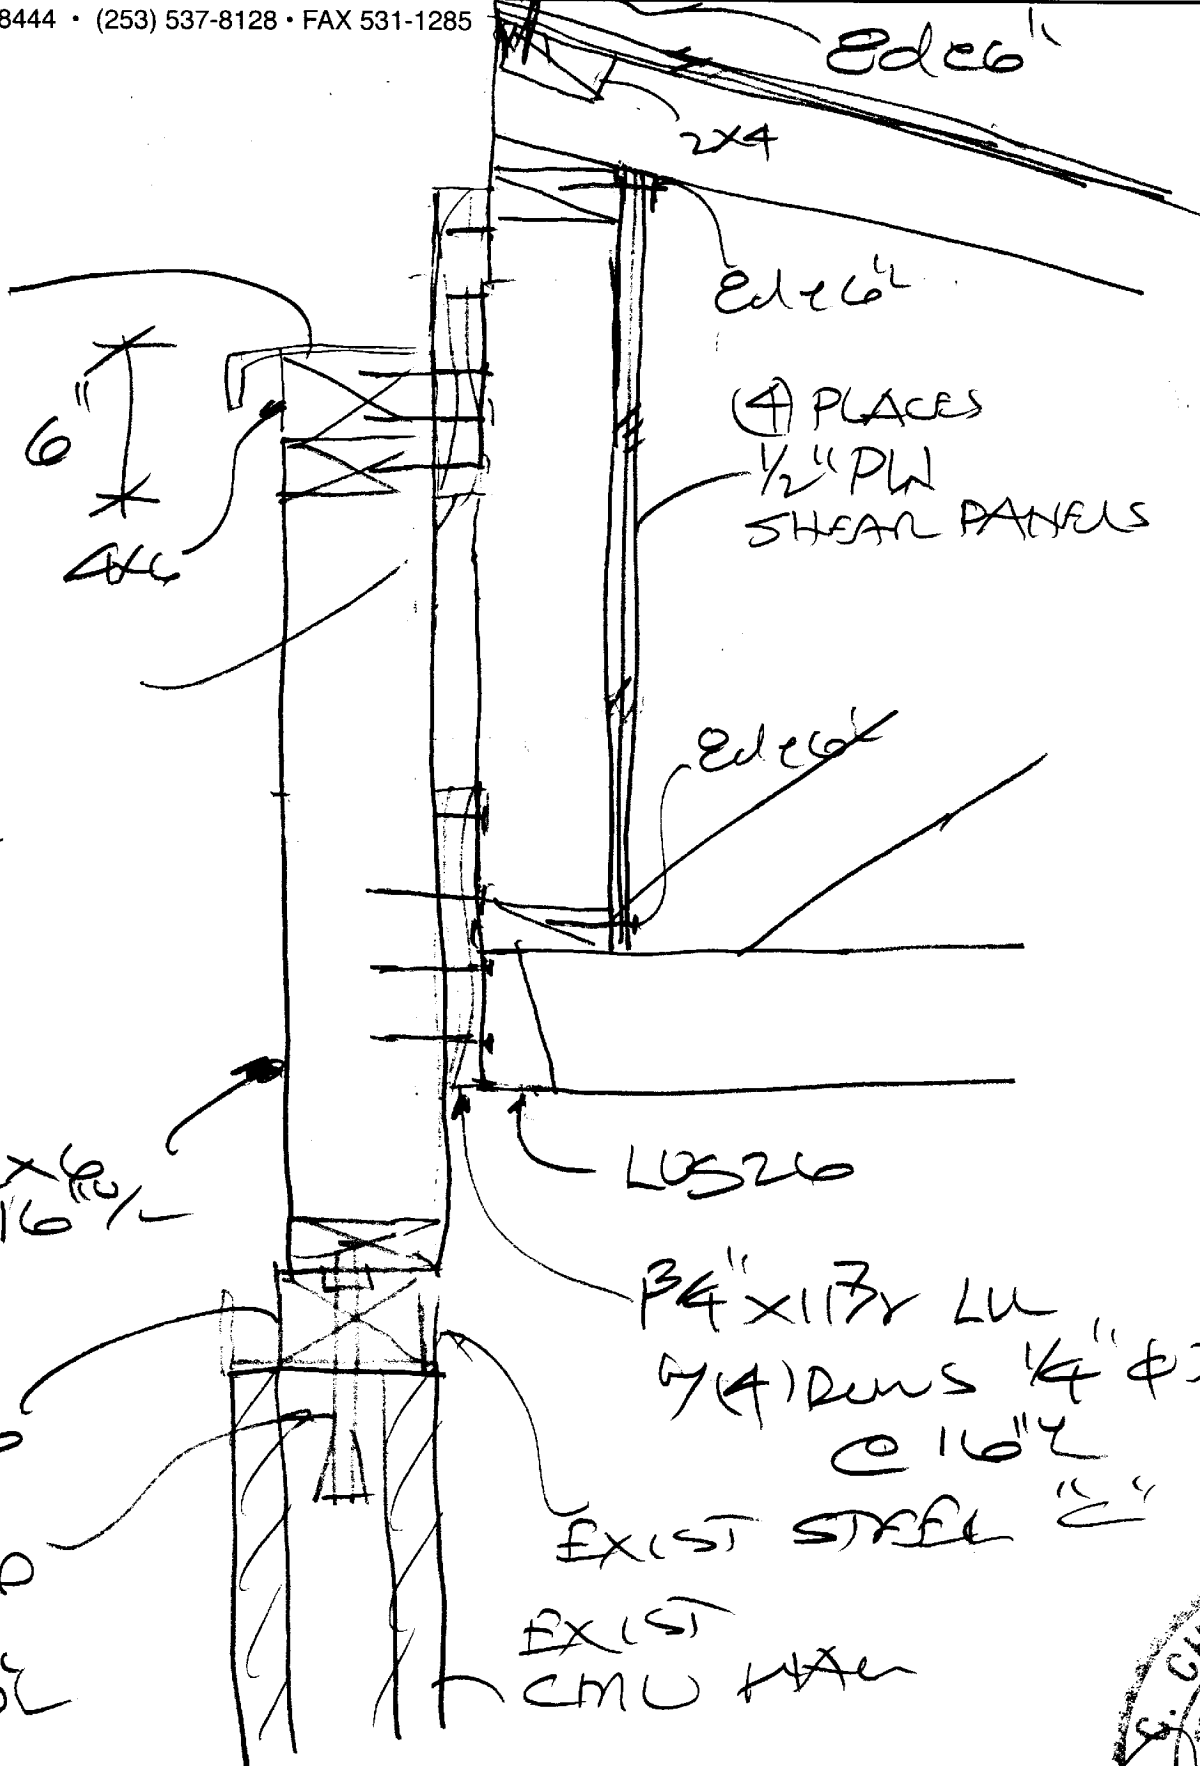 8444 • (253) 537-8128 • FAX 531-1285
8d @ 6"
2x4
8d @ 6"
(4) PLACES
1/2" PLW
SHEAR PANELS
6"
4x6
8d @ 6"
x6
16"
LUS26
1 3/4" x 11 7/8 LVL
w/(4) ROWS 1/4" ϕ
@ 16"
EXIST STEEL "C"
EXIST
CMU WALL
C. C